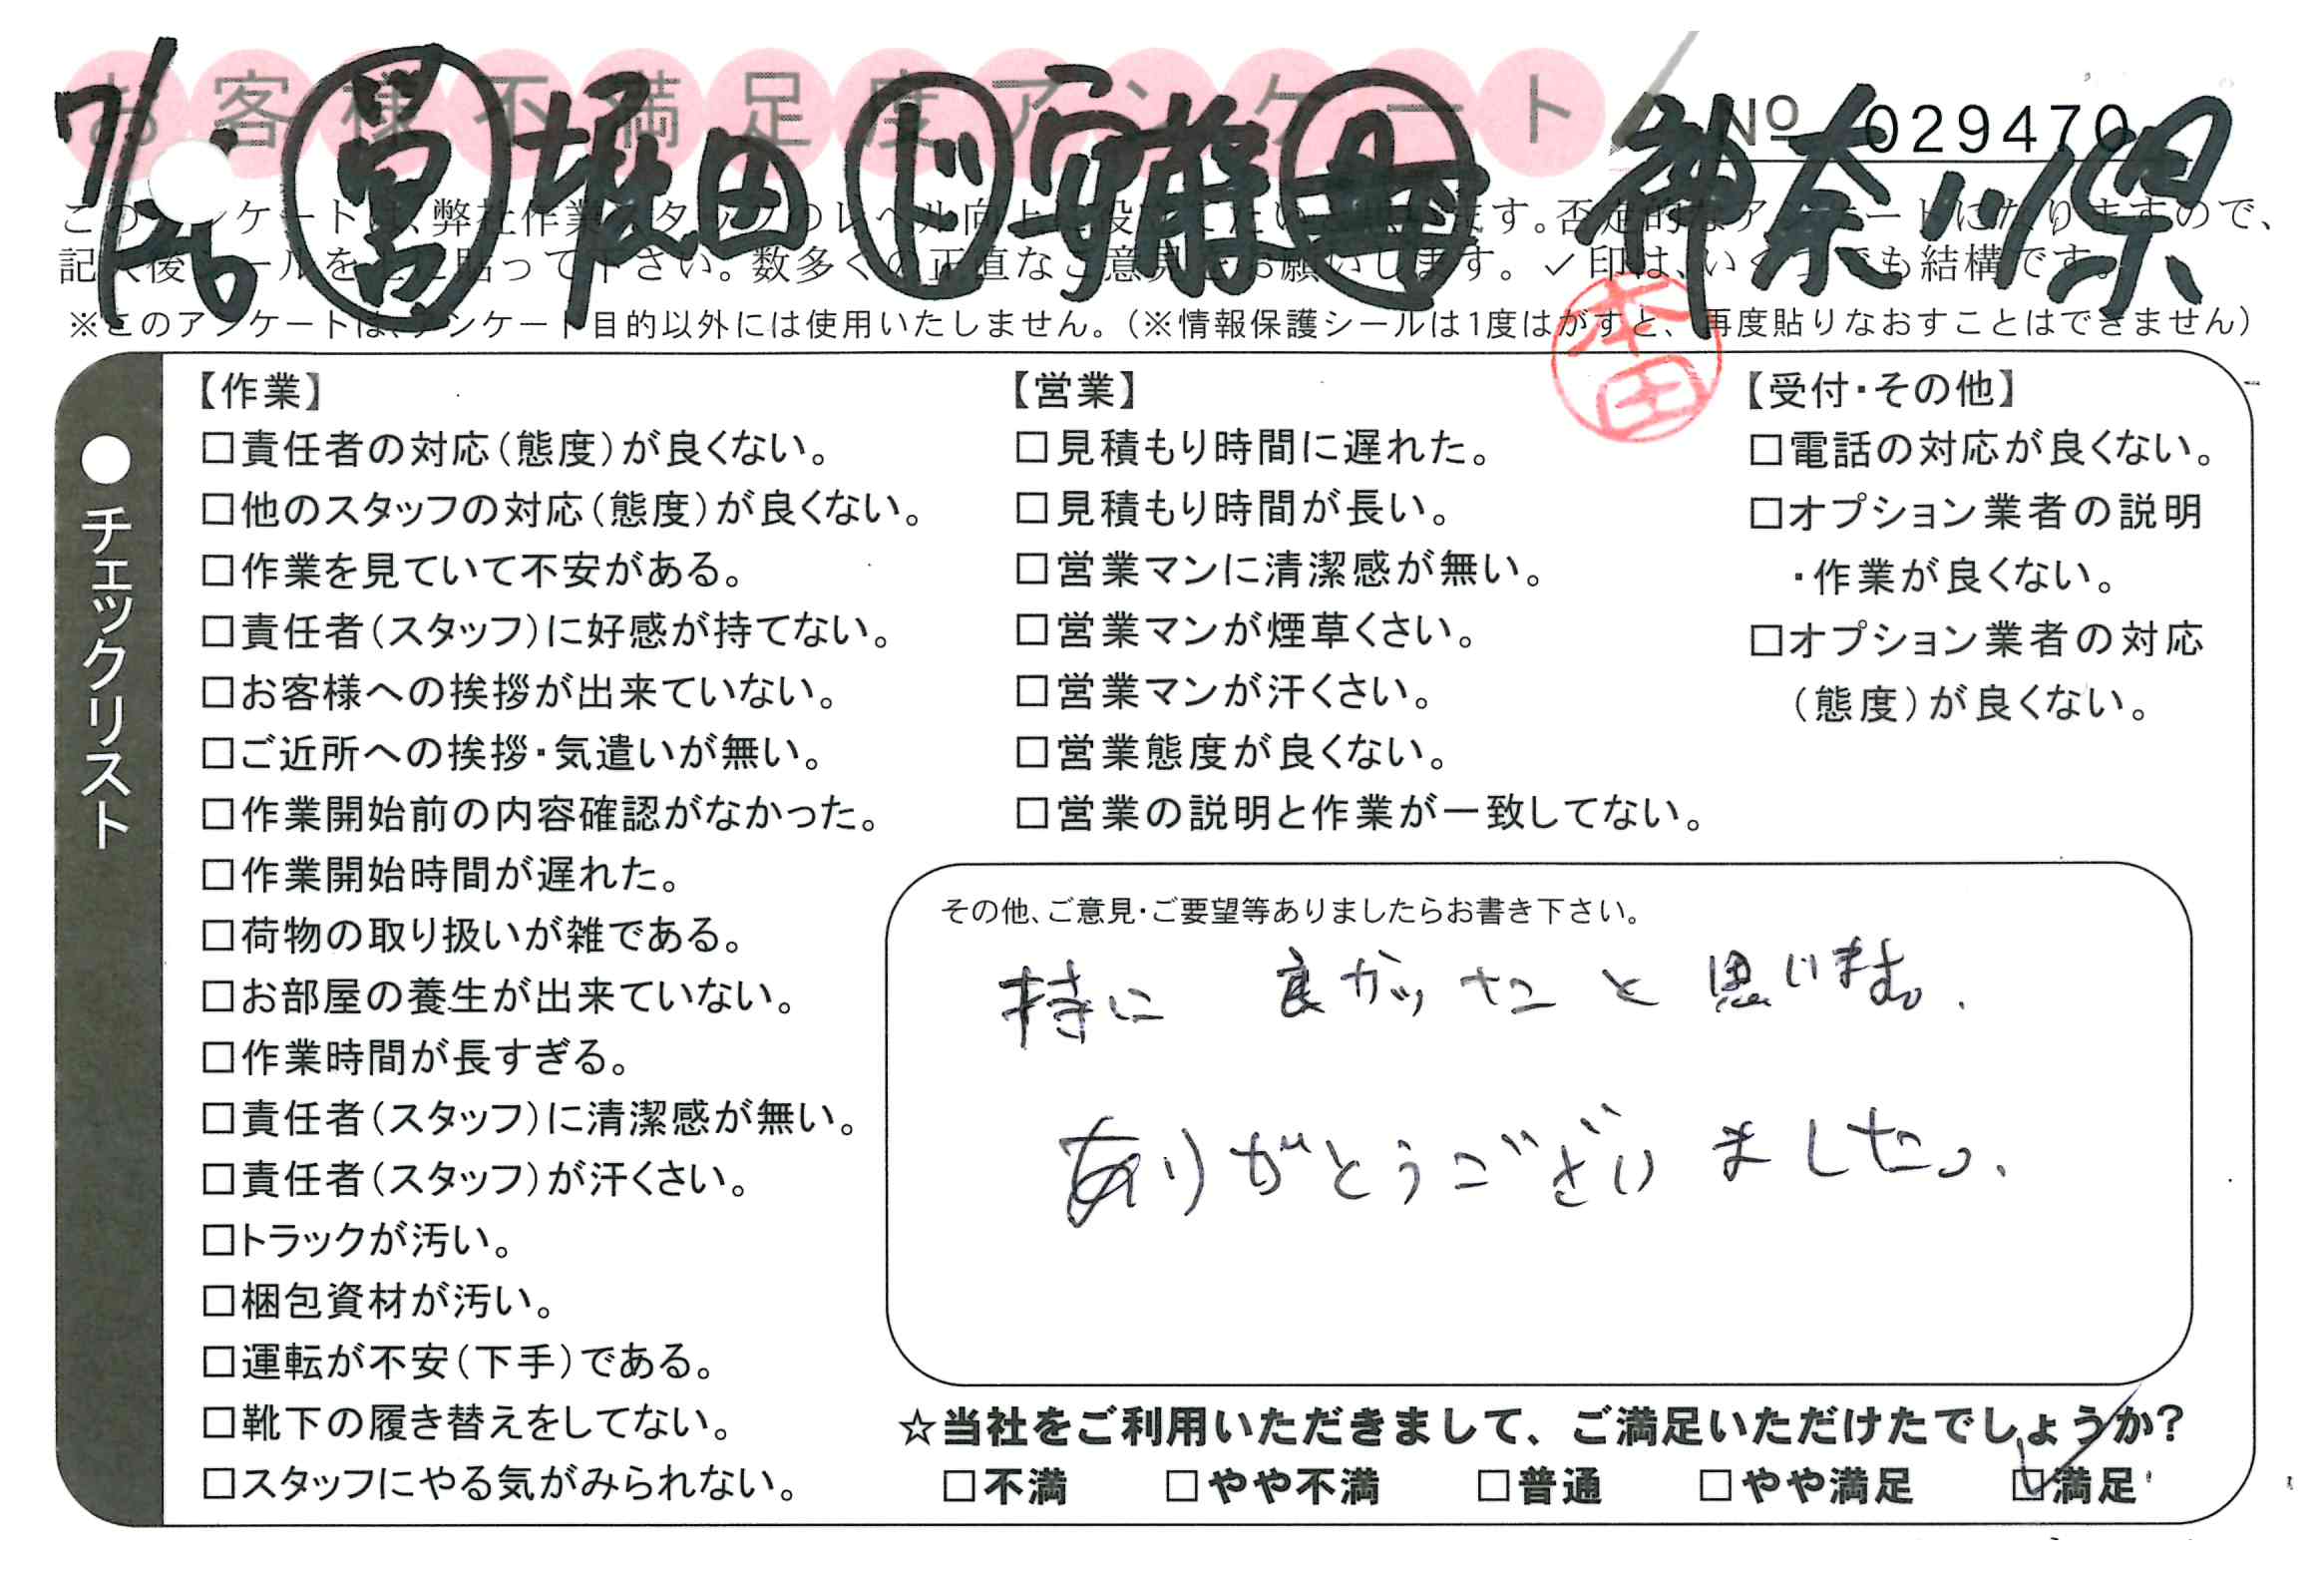 お客様不満足度アンケート
No 029470
7/26 営 堀田 ド 安藤 神奈川県
※このアンケートは、アンケート目的以外には使用いたしません。（※情報保護シールは1度はがすと、再度貼りなおすことはできません）
本田
●チェックリスト
【作業】
□責任者の対応（態度）が良くない。
□他のスタッフの対応（態度）が良くない。
□作業を見ていて不安がある。
□責任者（スタッフ）に好感が持てない。
□お客様への挨拶が出来ていない。
□ご近所への挨拶・気遣いが無い。
□作業開始前の内容確認がなかった。
□作業開始時間が遅れた。
□荷物の取り扱いが雑である。
□お部屋の養生が出来ていない。
□作業時間が長すぎる。
□責任者（スタッフ）に清潔感が無い。
□責任者（スタッフ）が汗くさい。
□トラックが汚い。
□梱包資材が汚い。
□運転が不安（下手）である。
□靴下の履き替えをしてない。
□スタッフにやる気がみられない。
【営業】
□見積もり時間に遅れた。
□見積もり時間が長い。
□営業マンに清潔感が無い。
□営業マンが煙草くさい。
□営業マンが汗くさい。
□営業態度が良くない。
□営業の説明と作業が一致してない。
【受付・その他】
□電話の対応が良くない。
□オプション業者の説明
・作業が良くない。
□オプション業者の対応
（態度）が良くない。
その他、ご意見・ご要望等ありましたらお書き下さい。
持に 良かったと思います。
ありがとうございました。
☆当社をご利用いただきまして、ご満足いただけたでしょうか？
□不満 □やや不満 □普通 □やや満足 ☑満足